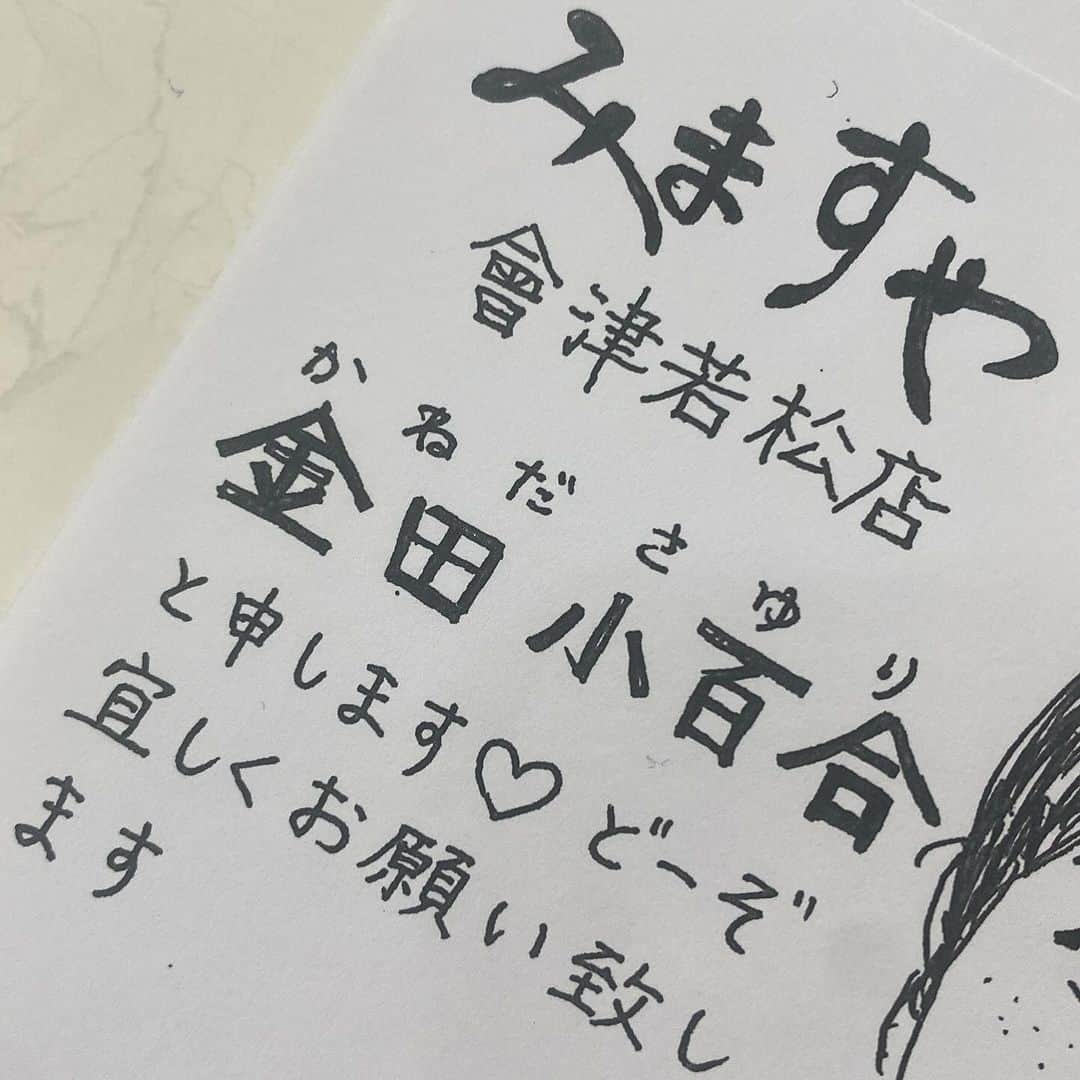 みますや
會津若松店
かねださゆり
金田小百合
と申します♡どーぞ
宜しくお願い致し
ます